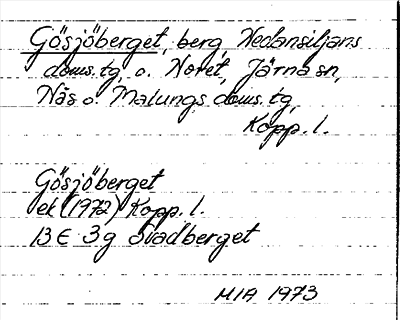 Gösjöberget, berg, Nedansiljans
doms.tg o. Noret, Järna sn,
Nås o. Malungs doms.tg,
Kopp. l.
Gösjöberget
ek (1972) Kopp. l.
13 E 3g Svadberget
MIA 1973